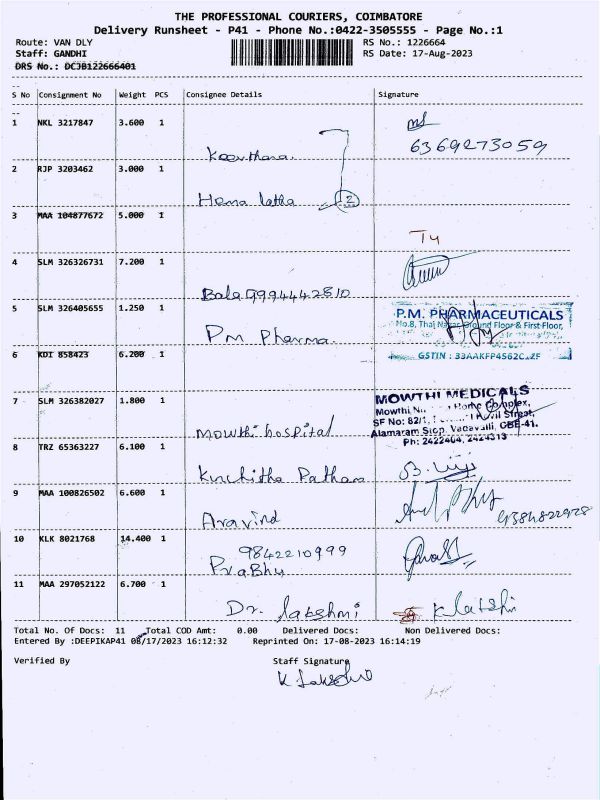 THE PROFESSIONAL COURIERS, COIMBATORE
Delivery Runsheet - P41 - Phone No.:0422-3505555 - Page No.:1
Route: VAN DLY RS No.: 1226664
Staff: GANDHI RS Date: 17-Aug-2023
DRS No.: DCJB122666401
S No Consignment No Weight PCS Consignee Details Signature
1 NKL 3217847 3.600 1
6369273059
Keerthana
2 RJP 3203462 3.000 1
Hema latha 2
3 MAA 104877672 5.000 1
4 SLM 326326731 7.200 1
Bala 9994442810
5 SLM 326405655 1.250 1 P.M. PHARMACEUTICALS
No.8, Thai Nagar Ground Floor & First Floor,
Pm Pharma
6 KDI 858423 6.200 1 GSTIN : 33AAKFP4562C ZF
7 SLM 326382027 1.800 1 MOWTHI MEDICALS
Mowthi Home Complex,
SF No: 82/1, Street,
Mowthi hospital Alamaram Stop, Vadavalli, CBE-41.
Ph: 2422404, 2424313
8 TRZ 65363227 6.100 1
9 MAA 100826502 6.600 1
Aravind
10 KLK 8021768 14.400 1 9842210999
PraBhu
11 MAA 297052122 6.700 1
Dr. lakshmi
Total No. Of Docs: 11 Total COD Amt: 0.00 Delivered Docs: Non Delivered Docs:
Entered By :DEEPIKAP41 08/17/2023 16:12:32 Reprinted On: 17-08-2023 16:14:19
Verified By Staff Signature